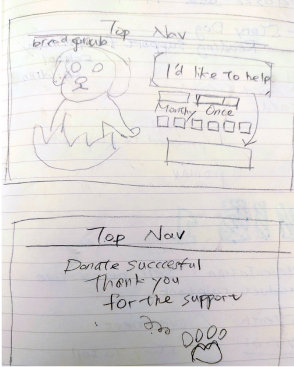 Top Nav
breadcrumb
I'd like to help
Monthly Once
Top Nav
Donate Succesful
Thank you
for the support